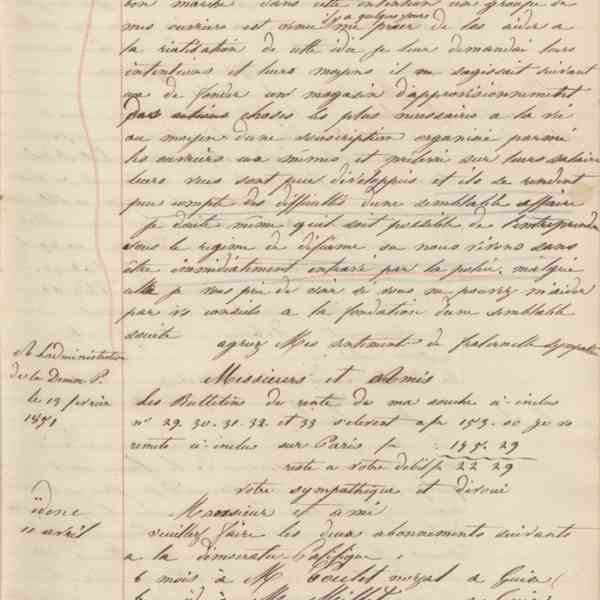 bon marché dans cette intention un groupe de
mes ouvriers est venu il y a quelques jours me prier de les aider a
la réalisation de cette idée je leur demandai leurs
intentions et leurs moyens il ne sagissait suivant
eux de fonder un magasin d'approvisionnement
des choses les plus nécessaires a la vie
au moyen d'une souscription organisée parmi
les ouvriers eux mêmes et prélevée sur leurs salaires
leurs vues sont peu développées et ils se rendent
peu compte des difficultés d'une semblable affaire
je doute même qu'il soit possible de l'entreprendre
sous le régime de défiance ou nous vivons sans
être immédiatement entravé par la police. malgré
cela je vous prie de voir si vous ne pouvez m'aider
par vos conseils a la fondation d'une semblable
société
agréez Mes sentiments de fraternelle sympathie
A L'administration
de la Démoc P.
le 13 février
1851
Messieurs et Amis
Les Bulletins de vente de ma souche ci-inclus
n° 29. 30. 31. 32. et 33 s'elevent a fr 153.00 je vous
remets ci-inclus sur Paris fr
reste a votre debit fr 22 29
votre sympathique et dévoué
idem
11 avril
Monsieur et ami
veuillez faire les deux abonnements suivants
a la démocratie Pacifique
6 mois à M a Guise